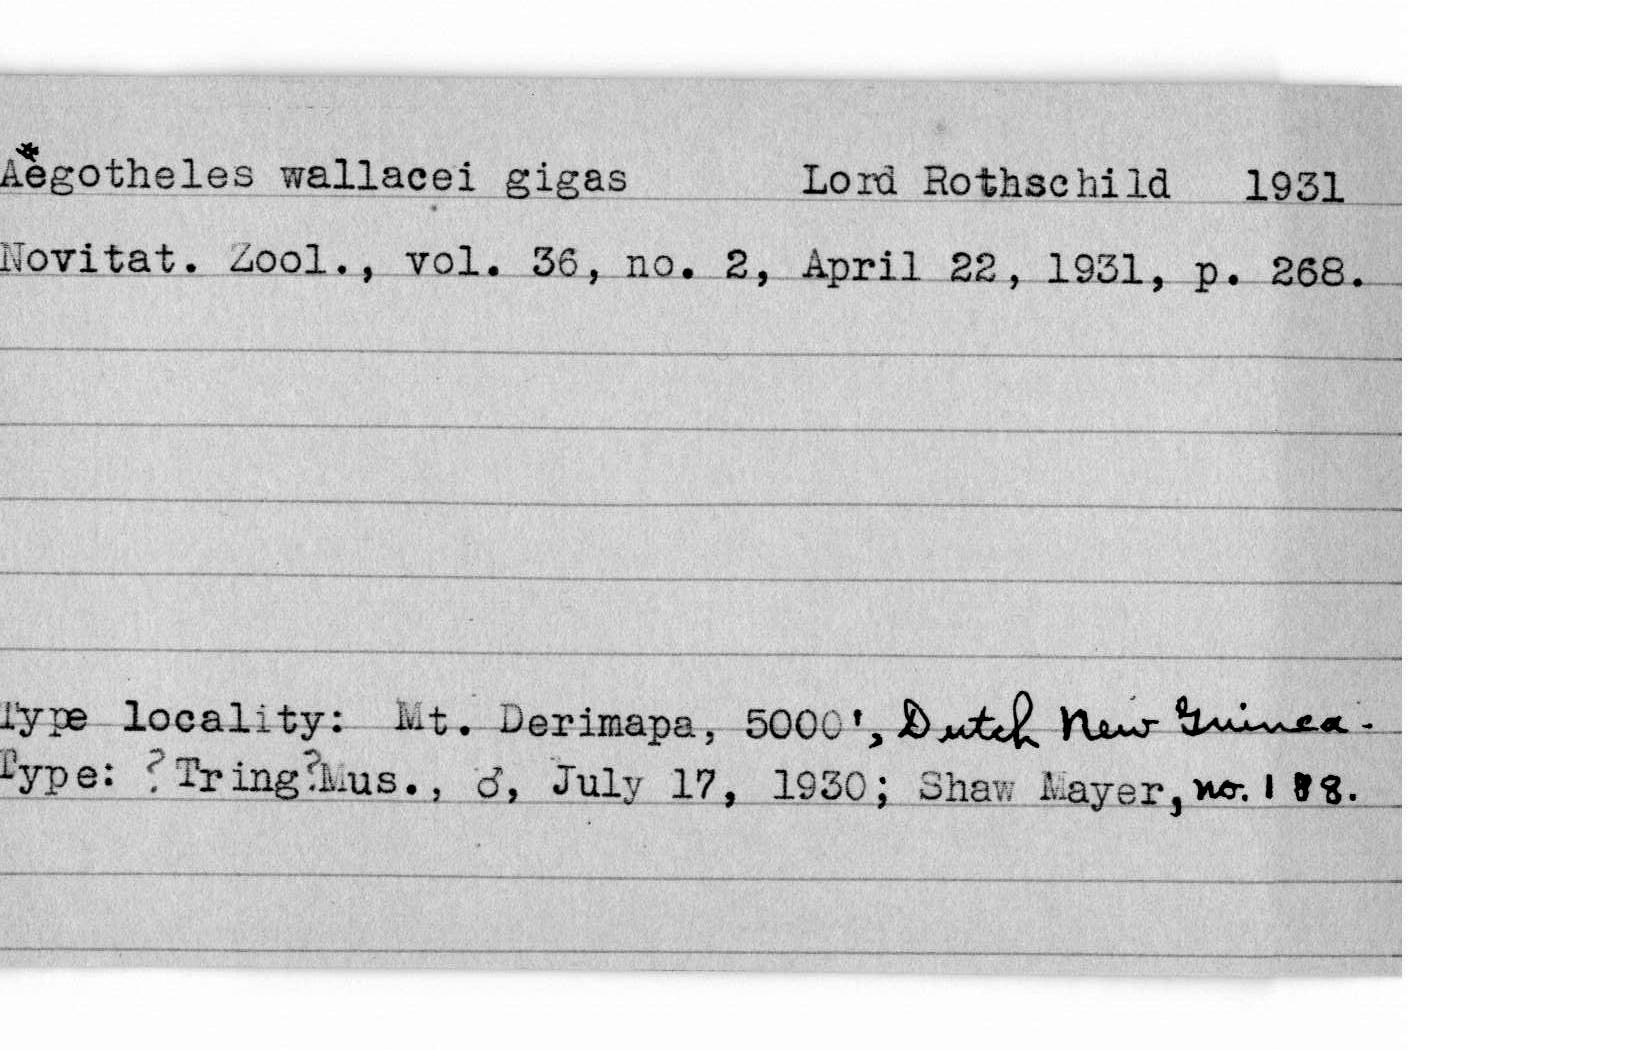 Aegotheles wallacei gigas Lord Rothschild 1931
Novitat. Zool., vol. 36, no. 2, April 22, 1931, p. 268.
Type locality: Mt. Derimapa, 5000', Dutch New Guinea.
Type: ?Tring?Mus., ♂, July 17, 1930; Shaw Mayer, no. 188.